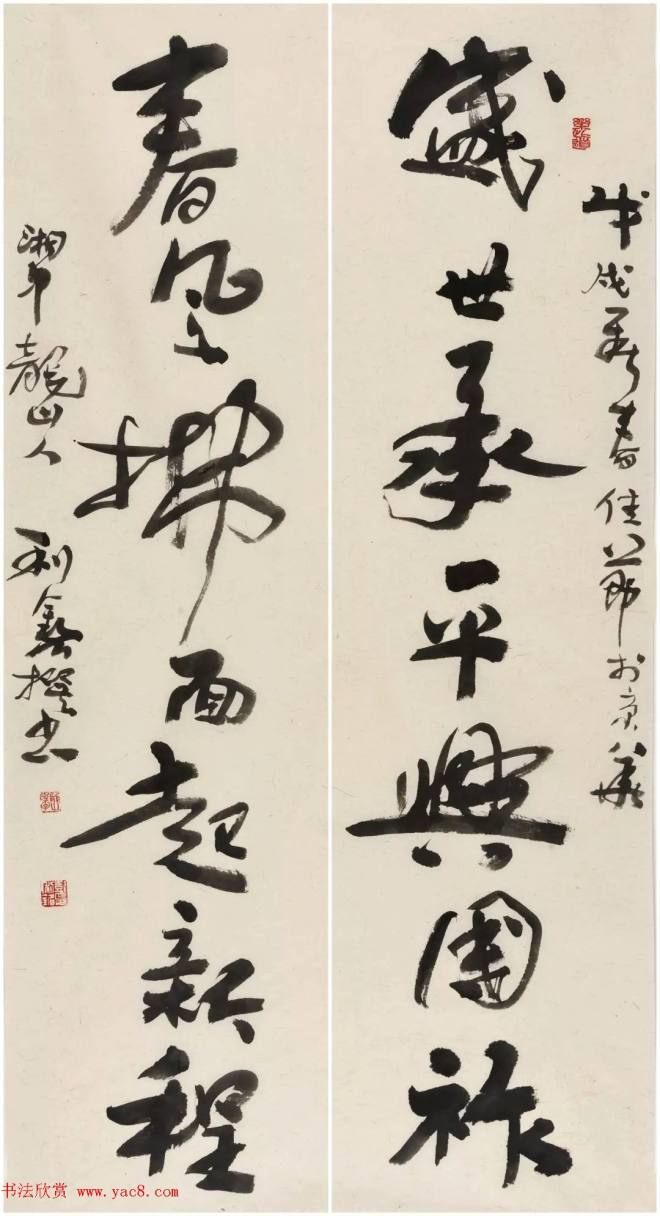 戊戌新春佳節於京華
盛世承平興國祚
春風拂面起新程
山人 利 撰书
书法欣赏 www.yac8.com